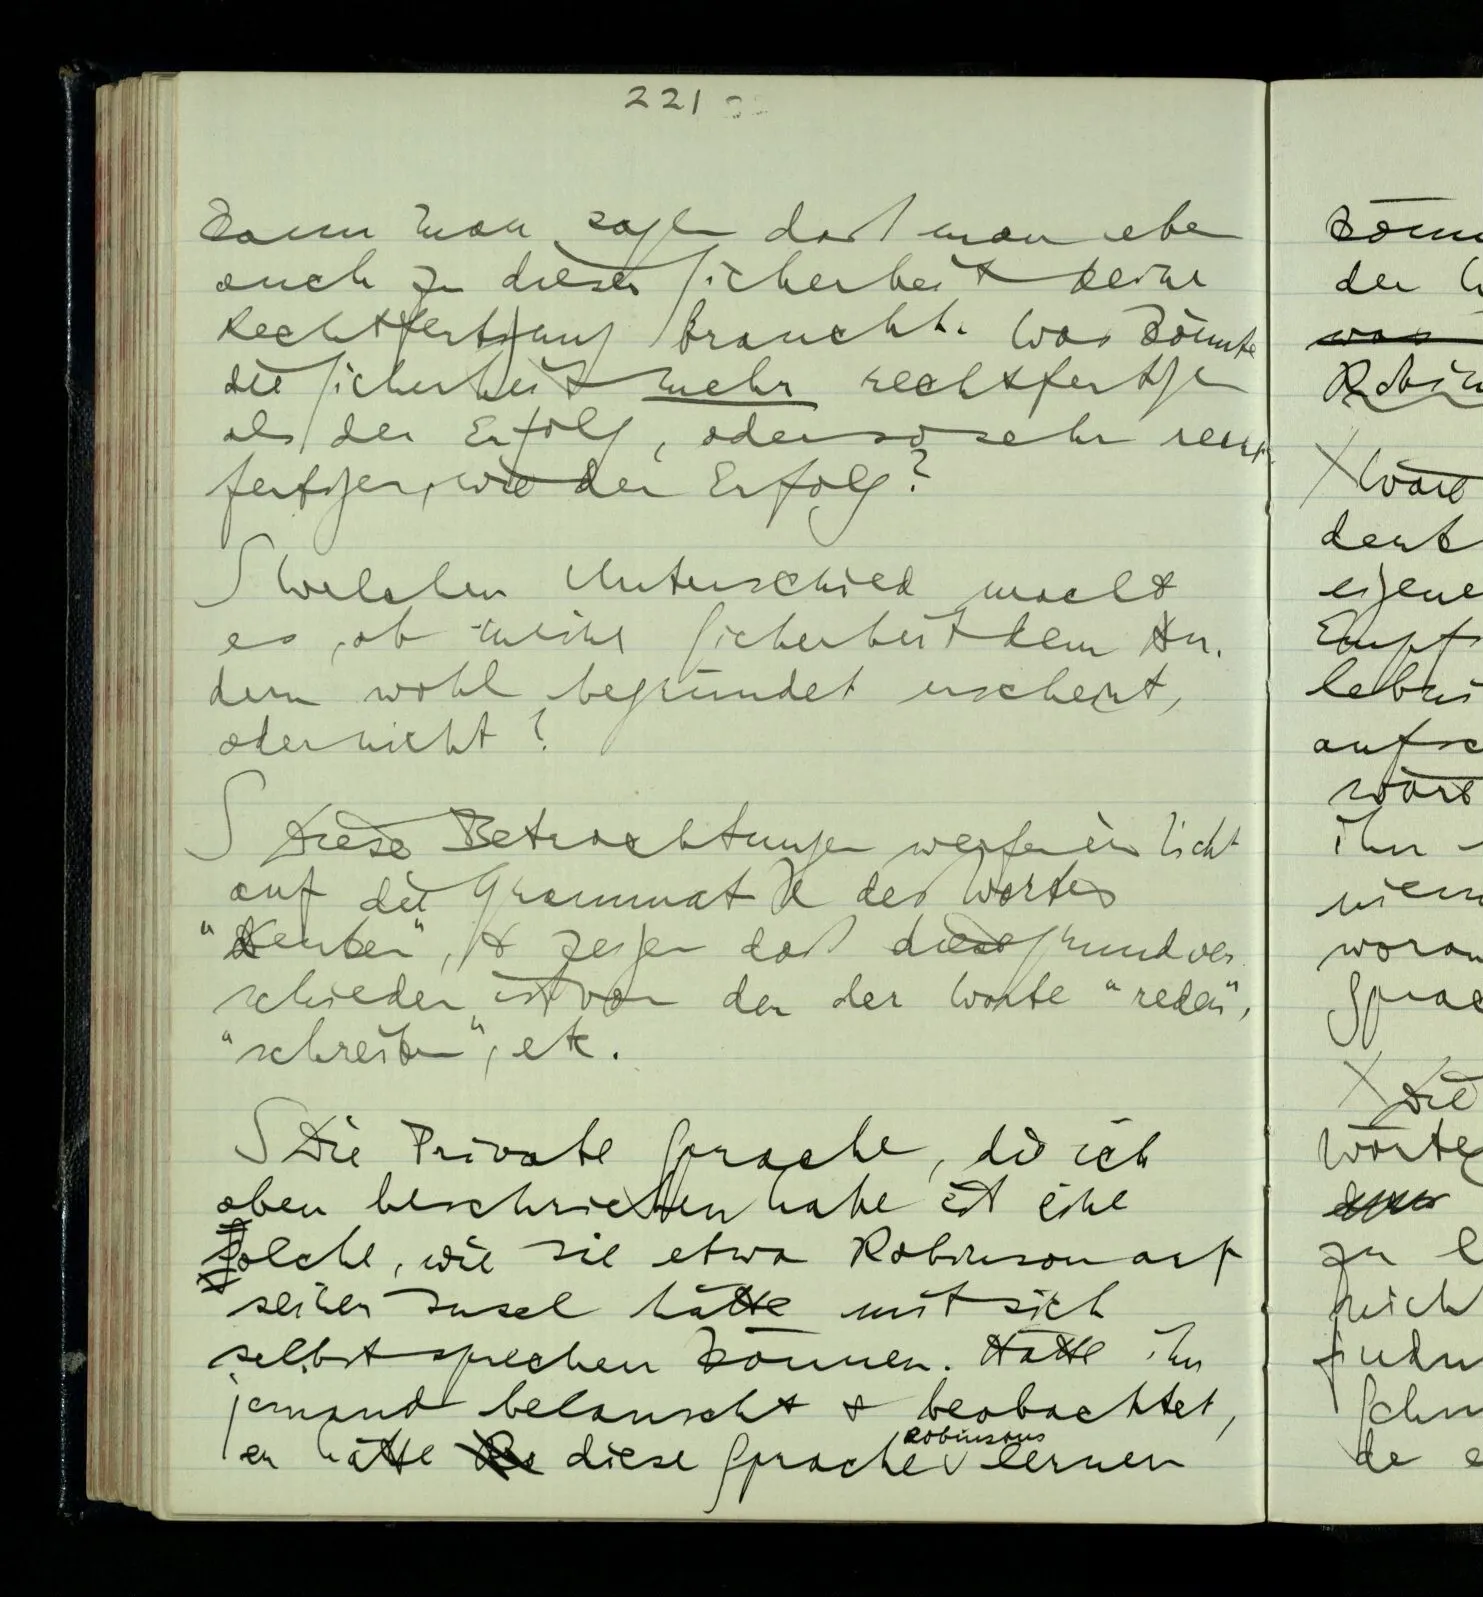 221
kann man sagen daß man eben
auch zu dieser Sicherheit keine
Rechtfertigung braucht. Was könnte
die Sicherheit mehr rechtfertigen
als der Erfolg, oder so sehr recht
fertigen, wie der Erfolg?
S Welchen Unterschied macht
es, ob meine Sicherheit dem An-
dern wohl begründet erscheint,
oder nicht?
S Diese Betrachtungen werfen ein Licht
auf die Grammatik des Wortes
"Denken", & zeigen daß diese grundver-
schieden ist von der der Worte "reden",
"schreiben", etc.
S Die Private Sprache, die ich
oben beschrieben habe ist eine
solche, wie sie etwa Robinson auf
seiner Insel hätte mit sich
selbst sprechen können. Hätte ihn
jemand belauscht & beobachtet,
er hätte diese Sprache Robinsons lernen
könn
der
was
Robin
X Wäre
denk
eigene
Empf
lebnis
aufsc
wäre
ihn
niem
woran
Sprac
X Die
Worte
zu